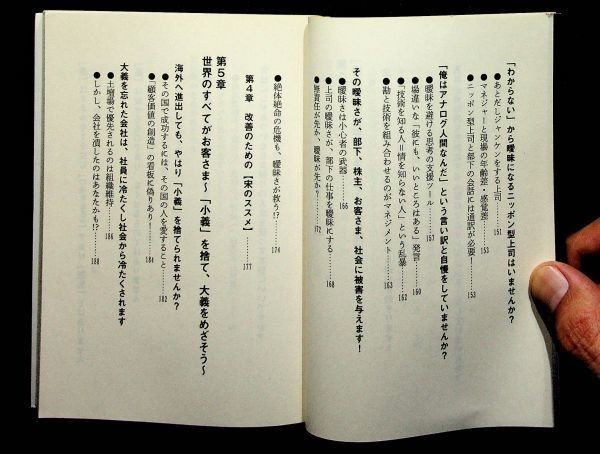 「わからない」から曖昧になるニッポン型上司はいませんか?
●あとだしジャンケンをする上司 151
●マネジャーと現場の年齢差・感覚差 153
●ニッポン型上司と部下の会話には通訳が必要! 153
「俺はアナログ人間なんだ」という言い訳と自慢をしていませんか?
●曖昧を避ける思考の支援ツール 157
●場違いな「彼にも、いいところはある」発言 160
●「技術を知る人=情を知らない人」という乱暴 162
●勘と技術を組み合わせるのがマネジメント 163
その曖昧さが、部下、株主、お客さま、社会に被害を与えます!
●曖昧さは小心者の武器 166
●上司の曖昧さが、部下の仕事を曖昧にする 168
●無責任が先か、曖昧が先か? 172
●絶体絶命の危機も、曖昧さが救う!? 174
第4章 改善のための【宋のススメ】 177
第5章
世界のすべてがお客さま〜「小義」を捨て、大義をめざそう〜
海外へ進出しても、やはり「小義」を捨てられませんか?
●その国で成功するには、その国の人を愛すること 182
●「顧客価値の創造」の看板に偽りあり! 184
大義を忘れた会社は、社員に冷たくし社会から冷たくされます
●土壇場で優先されるのは組織維持 186
●しかし、会社を潰したのはあなたかも!? 188